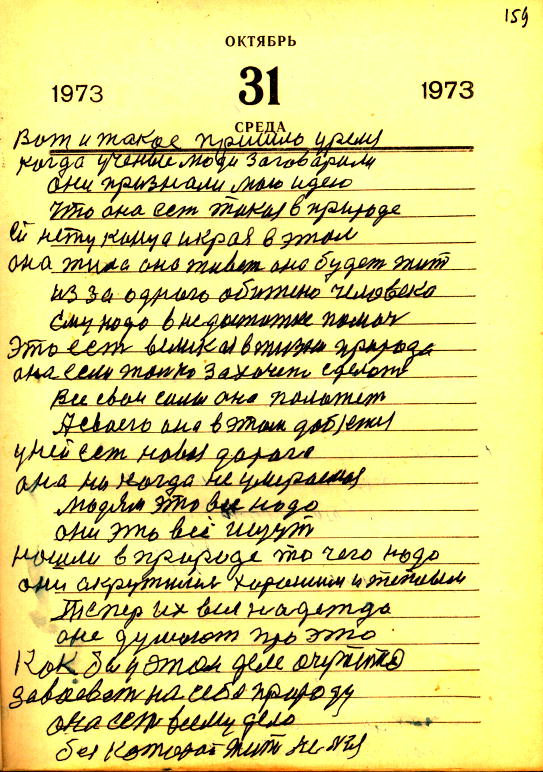 159
ОКТЯБРЬ
1973 31 1973
СРЕДА
Вот и такое пришло уремя
когда учение люди заговарили
они признали мою идею
что она ест такая в природе
ей нету конца и края в этом
она жила она живет она будет жит
из за одного обижено человека
ему надо в недостатке помоч
Это ест великая в жизни природа
она если только захочет сделат
Все свои силы она положет
А своего она в этом добется
у ней ест новая дорога
она ни когда не умираеця
людям это все надо
они это всё ищут
ношли в природе то чего надо
они акружилися хорошим и теплым
Тепер их вся надежда
оне думают про это
Как бы у этом деле очутится
завоеват на себя природу
она ест всему дело
без которой жит не